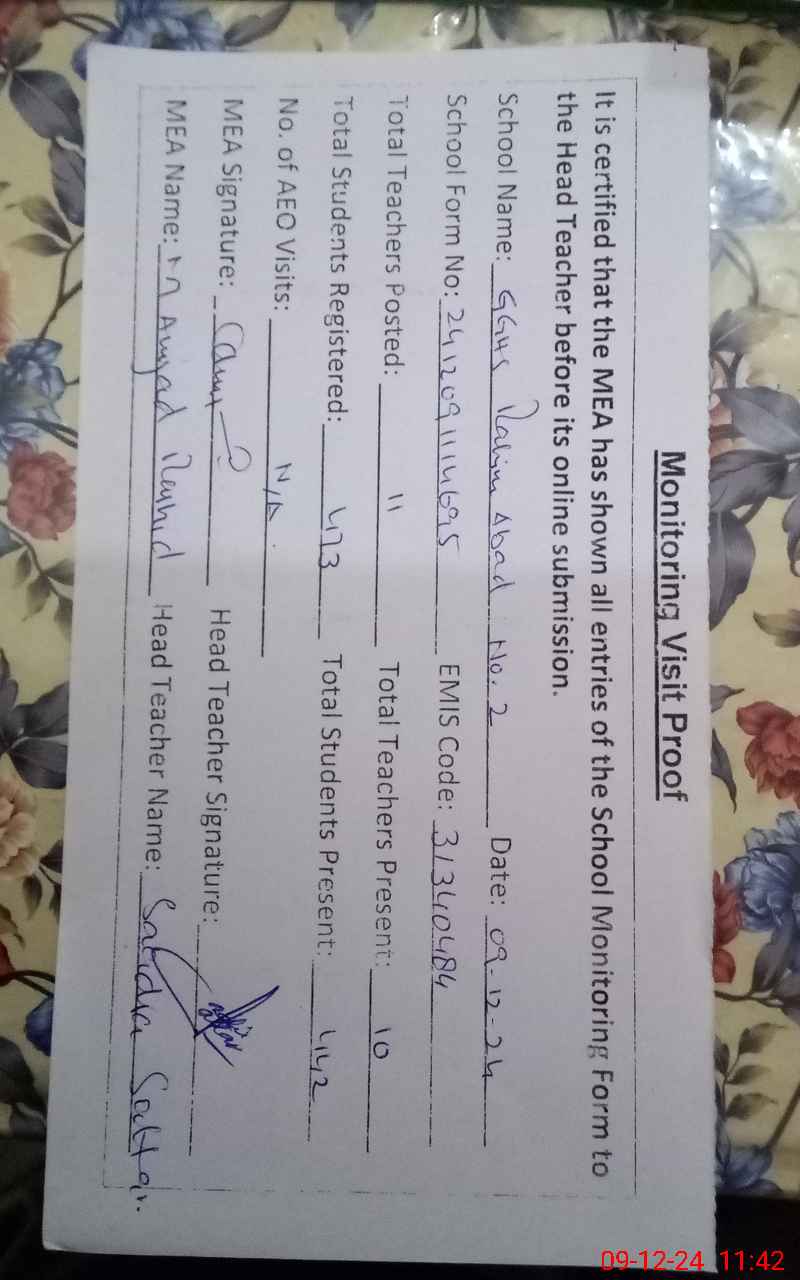 Monitoring Visit Proof
It is certified that the MEA has shown all entries of the School Monitoring Form to
the Head Teacher before its online submission.
School Name: GGHS Rahim Abad No. 2 Date: 09-12-24
School Form No: 2412091114695 EMIS Code: 31340484
Total Teachers Posted: 11 Total Teachers Present: 10
Total Students Registered: 473 Total Students Present: 442
No. of AEO Visits: N/A.
MEA Signature: Head Teacher Signature:
MEA Name: M Amjad Rashid Head Teacher Name: Sattar.
09-12-24 11:42